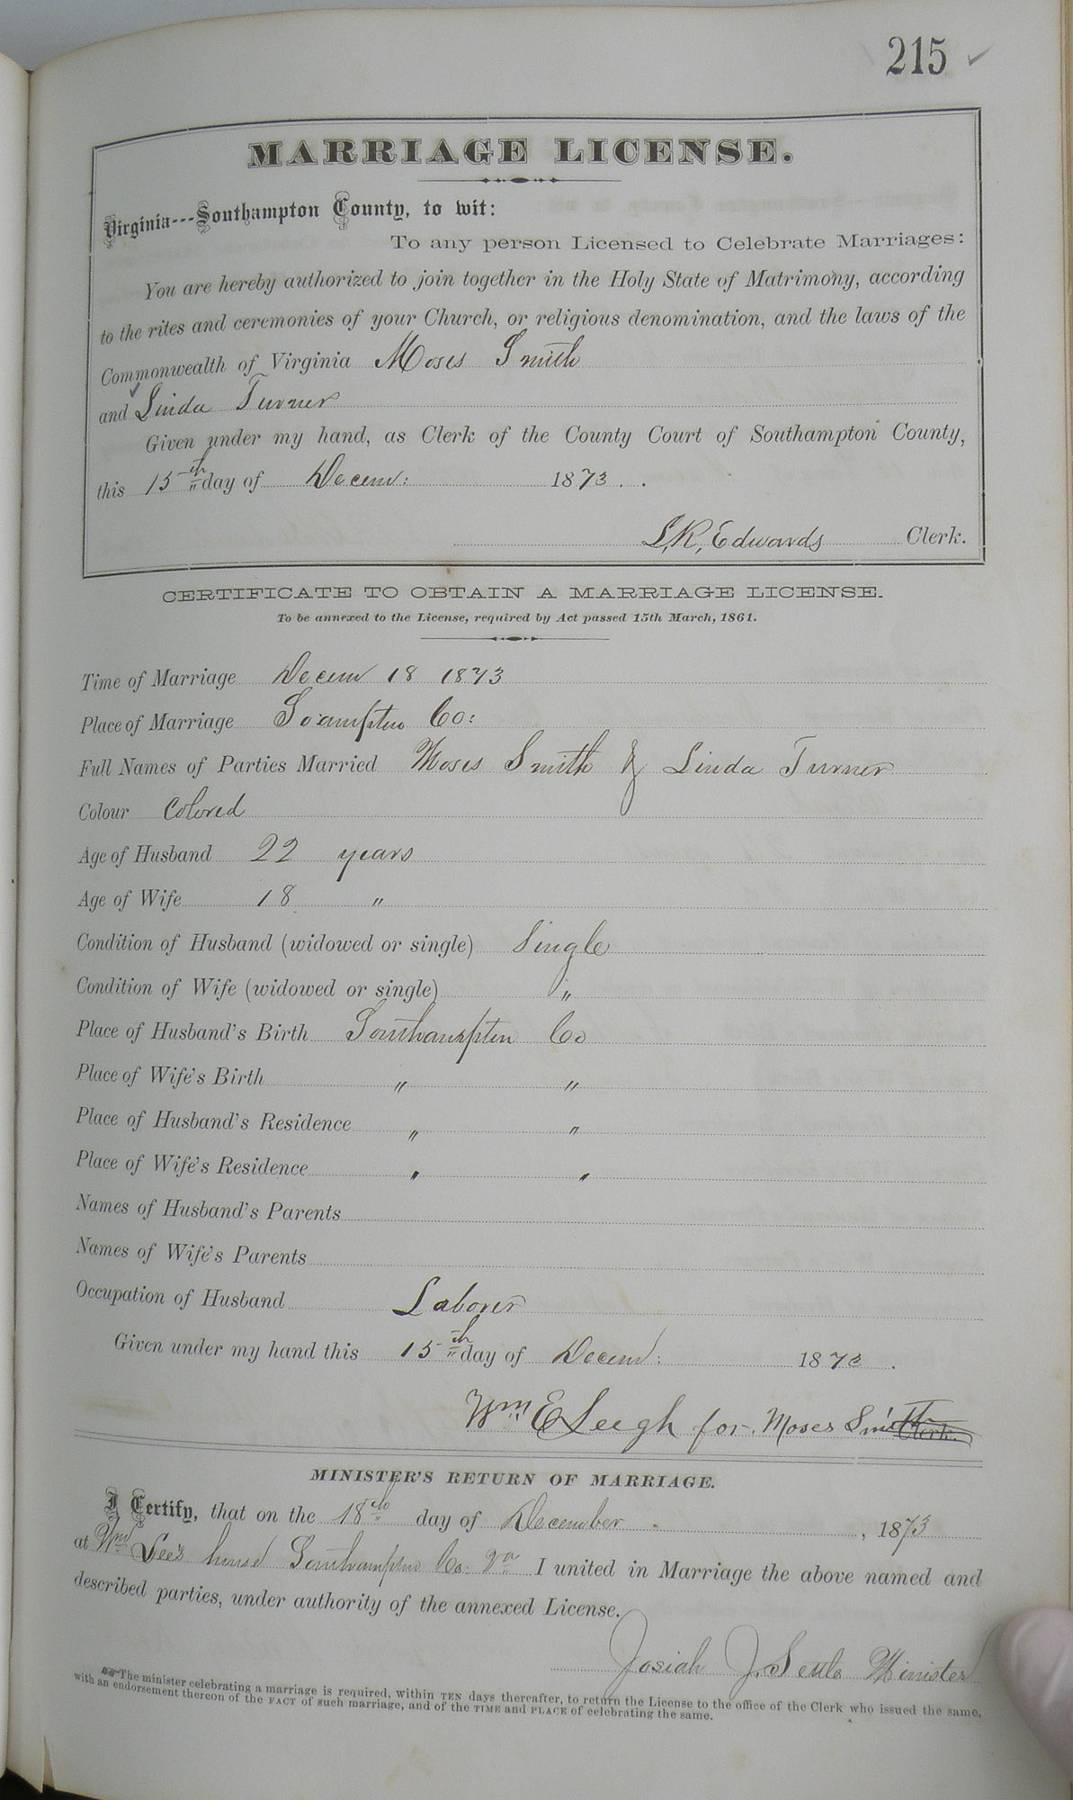 215
MARRIAGE LICENSE.
Virginia---Southampton County, to wit:
To any person Licensed to Celebrate Marriages:
You are hereby authorized to join together in the Holy State of Matrimony, according
to the rites and ceremonies of your Church, or religious denomination, and the laws of the
Commonwealth of Virginia Moses Smith
and Linda Turner
Given under my hand, as Clerk of the County Court of Southampton County,
this 15th day of Decem: 1873.
L. R. Edwards Clerk.
CERTIFICATE TO OBTAIN A MARRIAGE LICENSE.
To be annexed to the License, required by Act passed 15th March, 1861.
Time of Marriage Decem 18 1873
Place of Marriage Soampton Co:
Full Names of Parties Married Moses Smith & Linda Turner
Colour Colored
Age of Husband 22 years
Age of Wife 18 "
Condition of Husband (widowed or single) Single
Condition of Wife (widowed or single) "
Place of Husband's Birth Southampton Co
Place of Wife's Birth " "
Place of Husband's Residence " "
Place of Wife's Residence " "
Names of Husband's Parents
Names of Wife's Parents
Occupation of Husband Laborer
Given under my hand this 15th day of Decem: 1873.
Wm E Leegh for Moses Smith Clerk.
MINISTER'S RETURN OF MARRIAGE.
I Certify, that on the 18th day of December, 1873
at Wm Lee's house Southampton Co. Va I united in Marriage the above named and
described parties, under authority of the annexed License.
Josiah J. Settle Minister
The minister celebrating a marriage is required, within TEN days thereafter, to return the License to the office of the Clerk who issued the same,
with an endorsement thereon of the FACT of such marriage, and of the TIME and PLACE of celebrating the same.